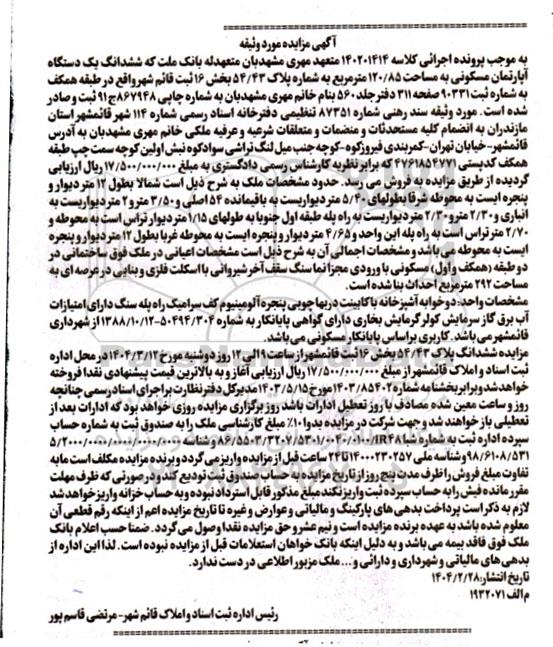 آگهی مزایده مورد وثیقه
به موجب پرونده اجرائی کلاسه ۱۴۰۲۰۱۴۱۴ متعهد مهری مشهدبان متعهدله بانک ملت که ششدانگ یک دستگاه
آپارتمان مسکونی به مساحت ۱۲۰/۸۵ مترمربع به شماره پلاک ۵۴/۴۳ بخش ۱۶ ثبت قائم شهر واقع در طبقه همکف
به شماره ثبت ۹۰۳۳۱ صفحه ۳۱۱ دفتر جلد ۵۶۰ بنام خانم مهری مشهدبان به شماره چاپی ۸۶۷۹۴۸ ج ۹۱ ثبت و صادر
شده است. مورد وثیقه سند رهنی شماره ۸۷۳۵۱ تنظیمی دفترخانه اسناد رسمی شماره ۱۱۴ شهر قائمشهر استان
مازندران به انضمام کلیه مستحدثات و منضمات و متعلقات شرعیه و عرفیه ملکی خانم مهری مشهدبان به آدرس
قائمشهر- خیابان تهران-کمربندی فیروزکوه-کوچه جنب میل لنگ تراشی سوادکوه نبش اولین کوچه سمت چپ طبقه
همکف کدپستی ۴۷۶۱۸۵۴۷۷۱ که برابر نظریه کارشناس رسمی دادگستری به مبلغ ۱۷/۵۰۰/۰۰۰/۰۰۰ ریال ارزیابی
گردیده از طریق مزایده به فروش می رسد. حدود مشخصات ملک به شرح ذیل است شمالا بطول ۱۲ متر دیوار و
پنجره ایست به محوطه شرقا بطولهای ۵/۴۰ متر دیواریست به باقیمانده ۵۴ اصلی و ۳/۵۰ متر و ۲ متر دیواریست به
انباری و ۲/۳۰ متر و ۲/۳۰ متر دیواریست به راه پله طبقه اول جنوبا به طولهای ۱/۱۵ متر دیوار تراس است به محوطه و
۲/۷۰ متر تراس است به راه پله این واحد و ۴/۶۵ متر دیوار و پنجره ایست به محوطه غربا بطول ۱۲ متر دیوار و پنجره
ایست به محوطه می باشد و مشخصات اجمالی آن به شرح ذیل است مشخصات اعیانی در ملک فوق ساختمانی در
دو طبقه (همکف و اول) مسکونی با ورودی مجزا نما سنگ سقف آخر شیروانی با اسکلت فلزی و بنایی در عرصه ای به
مساحت ۲۹۲ مترمربع احداث بنا شده است.
مشخصات واحد: دوخوابه آشپزخانه با کابینت دربها چوبی پنجره آلومینیوم کف سرامیک راه پله سنگ دارای امتیازات
آب برق گاز سرمایش کولر گرمایش بخاری دارای گواهی پایانکار به شماره ۵۰۴۹۴/۳۰۴-۱۳۸۸/۱۰/۱۲ از شهرداری
قائمشهر می باشد. کاربری براساس پایانکار مسکونی می باشد.
مزایده ششدانگ پلاک ۵۴/۴۳ بخش ۱۶ ثبت قائمشهر از ساعت ۹ الی ۱۲ روز دوشنبه مورخ ۱۴۰۴/۳/۱۲ در محل اداره
ثبت اسناد و املاک قائمشهر از مبلغ ۱۷/۵۰۰/۰۰۰/۰۰۰ ریال ارزیابی آغاز و به بالاترین قیمت پیشنهادی نقدا فروخته
خواهد شد و برابر بخشنامه شماره ۱۴۰۳/۸۵۴۰۲ مورخ ۱۴۰۳/۵/۱۵ مدیرکل دفتر نظارت بر اجرای اسناد رسمی چنانچه
روز و ساعت معین شده مصادف با روز تعطیل ادارات باشد روز برگزاری مزایده روزی خواهد بود که ادارات بعد از
تعطیلی باز خواهند شد و جهت شرکت در مزایده بدوا ۱۰٪ مبلغ کارشناسی ملک را به صندوق ثبت به شماره حساب
سپرده اداره ثبت به شماره شبا
۹۸/۶۱۰۸/۵۳۱ و شناسه ملی ۱۴۰۰۰۲۳۰۲۵۷ تا ۲۴ ساعت قبل از مزایده واریز می گردد و برنده مزایده مکلف است مابه
تفاوت مبلغ فروش را ظرف مدت پنج روز از تاریخ مزایده به حساب صندوق ثبت تودیع کند و در صورتی که ظرف مهلت
مقرر مانده فیش را به حساب سپرده ثبت واریز نکند مبلغ مذکور قابل استرداد نبوده و به حساب خزانه واریز خواهد شد
لازم به ذکر است پرداخت بدهی های پارکینگ و مالیاتی و عوارض و غیره تا تاریخ مزایده اعم از اینکه رقم قطعی آن
معلوم شده باشد به عهده برنده مزایده است و نیم عشر و حق مزایده نقدا وصول می گردد. ضمنا حسب اعلام بانک
ملک فوق فاقد بیمه می باشد و به دلیل اینکه بانک خواهان استعلامات قبل از مزایده نبوده است. لذا این اداره از
بدهی های مالیاتی و شهرداری و دارائی و... ملک مزبور اطلاعی در دست ندارد.
تاریخ انتشار: ۱۴۰۴/۲/۲۸
م الف ۱۹۳۲۰۷۱
رئیس اداره ثبت اسناد و املاک قائم شهر- مرتضی قاسم پور